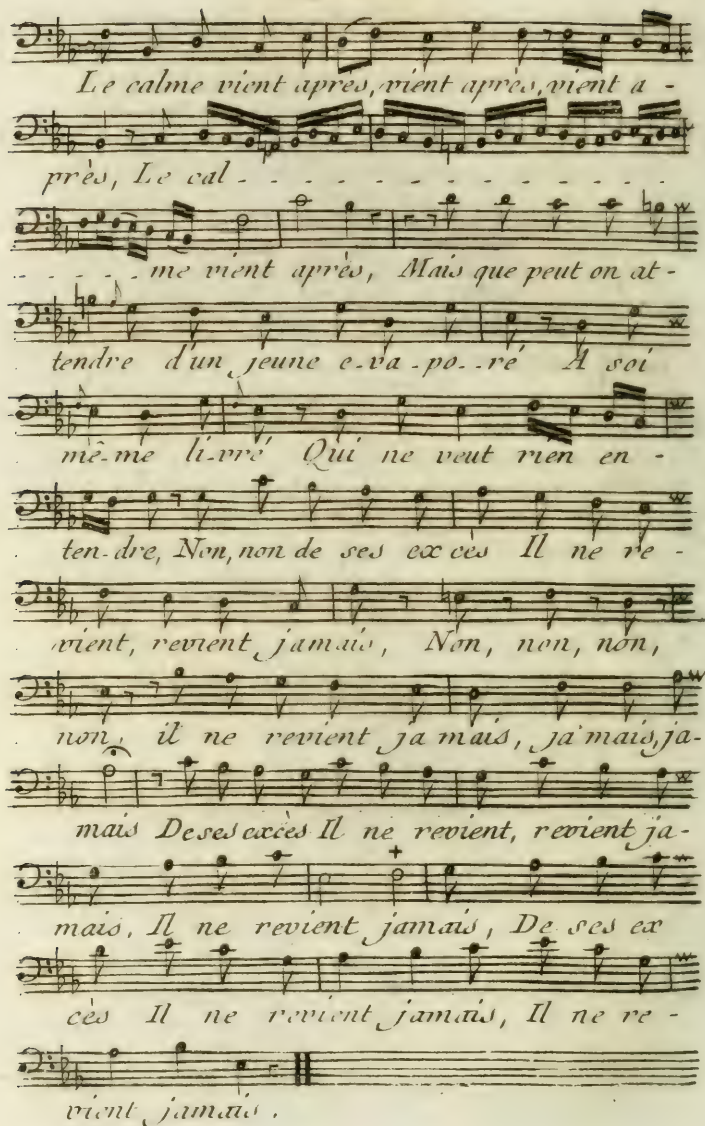 Le calme vient après, vient après, vient a -
près, Le cal - - - - - - - - - - - -
- - - - - me vient après, Mais que peut on at -
tendre d'un jeune e-va-po-ré A soi
mê-me li-vré Qui ne veut rien en -
ten-dre, Non, non de ses excès Il ne re -
vient, revient jamais, Non, non, non,
non, il ne revient ja mais, ja mais, ja-
mais De ses excès Il ne revient, revient ja-
mais, Il ne revient jamais, De ses ex
cès Il ne revient jamais, Il ne re -
vient jamais.